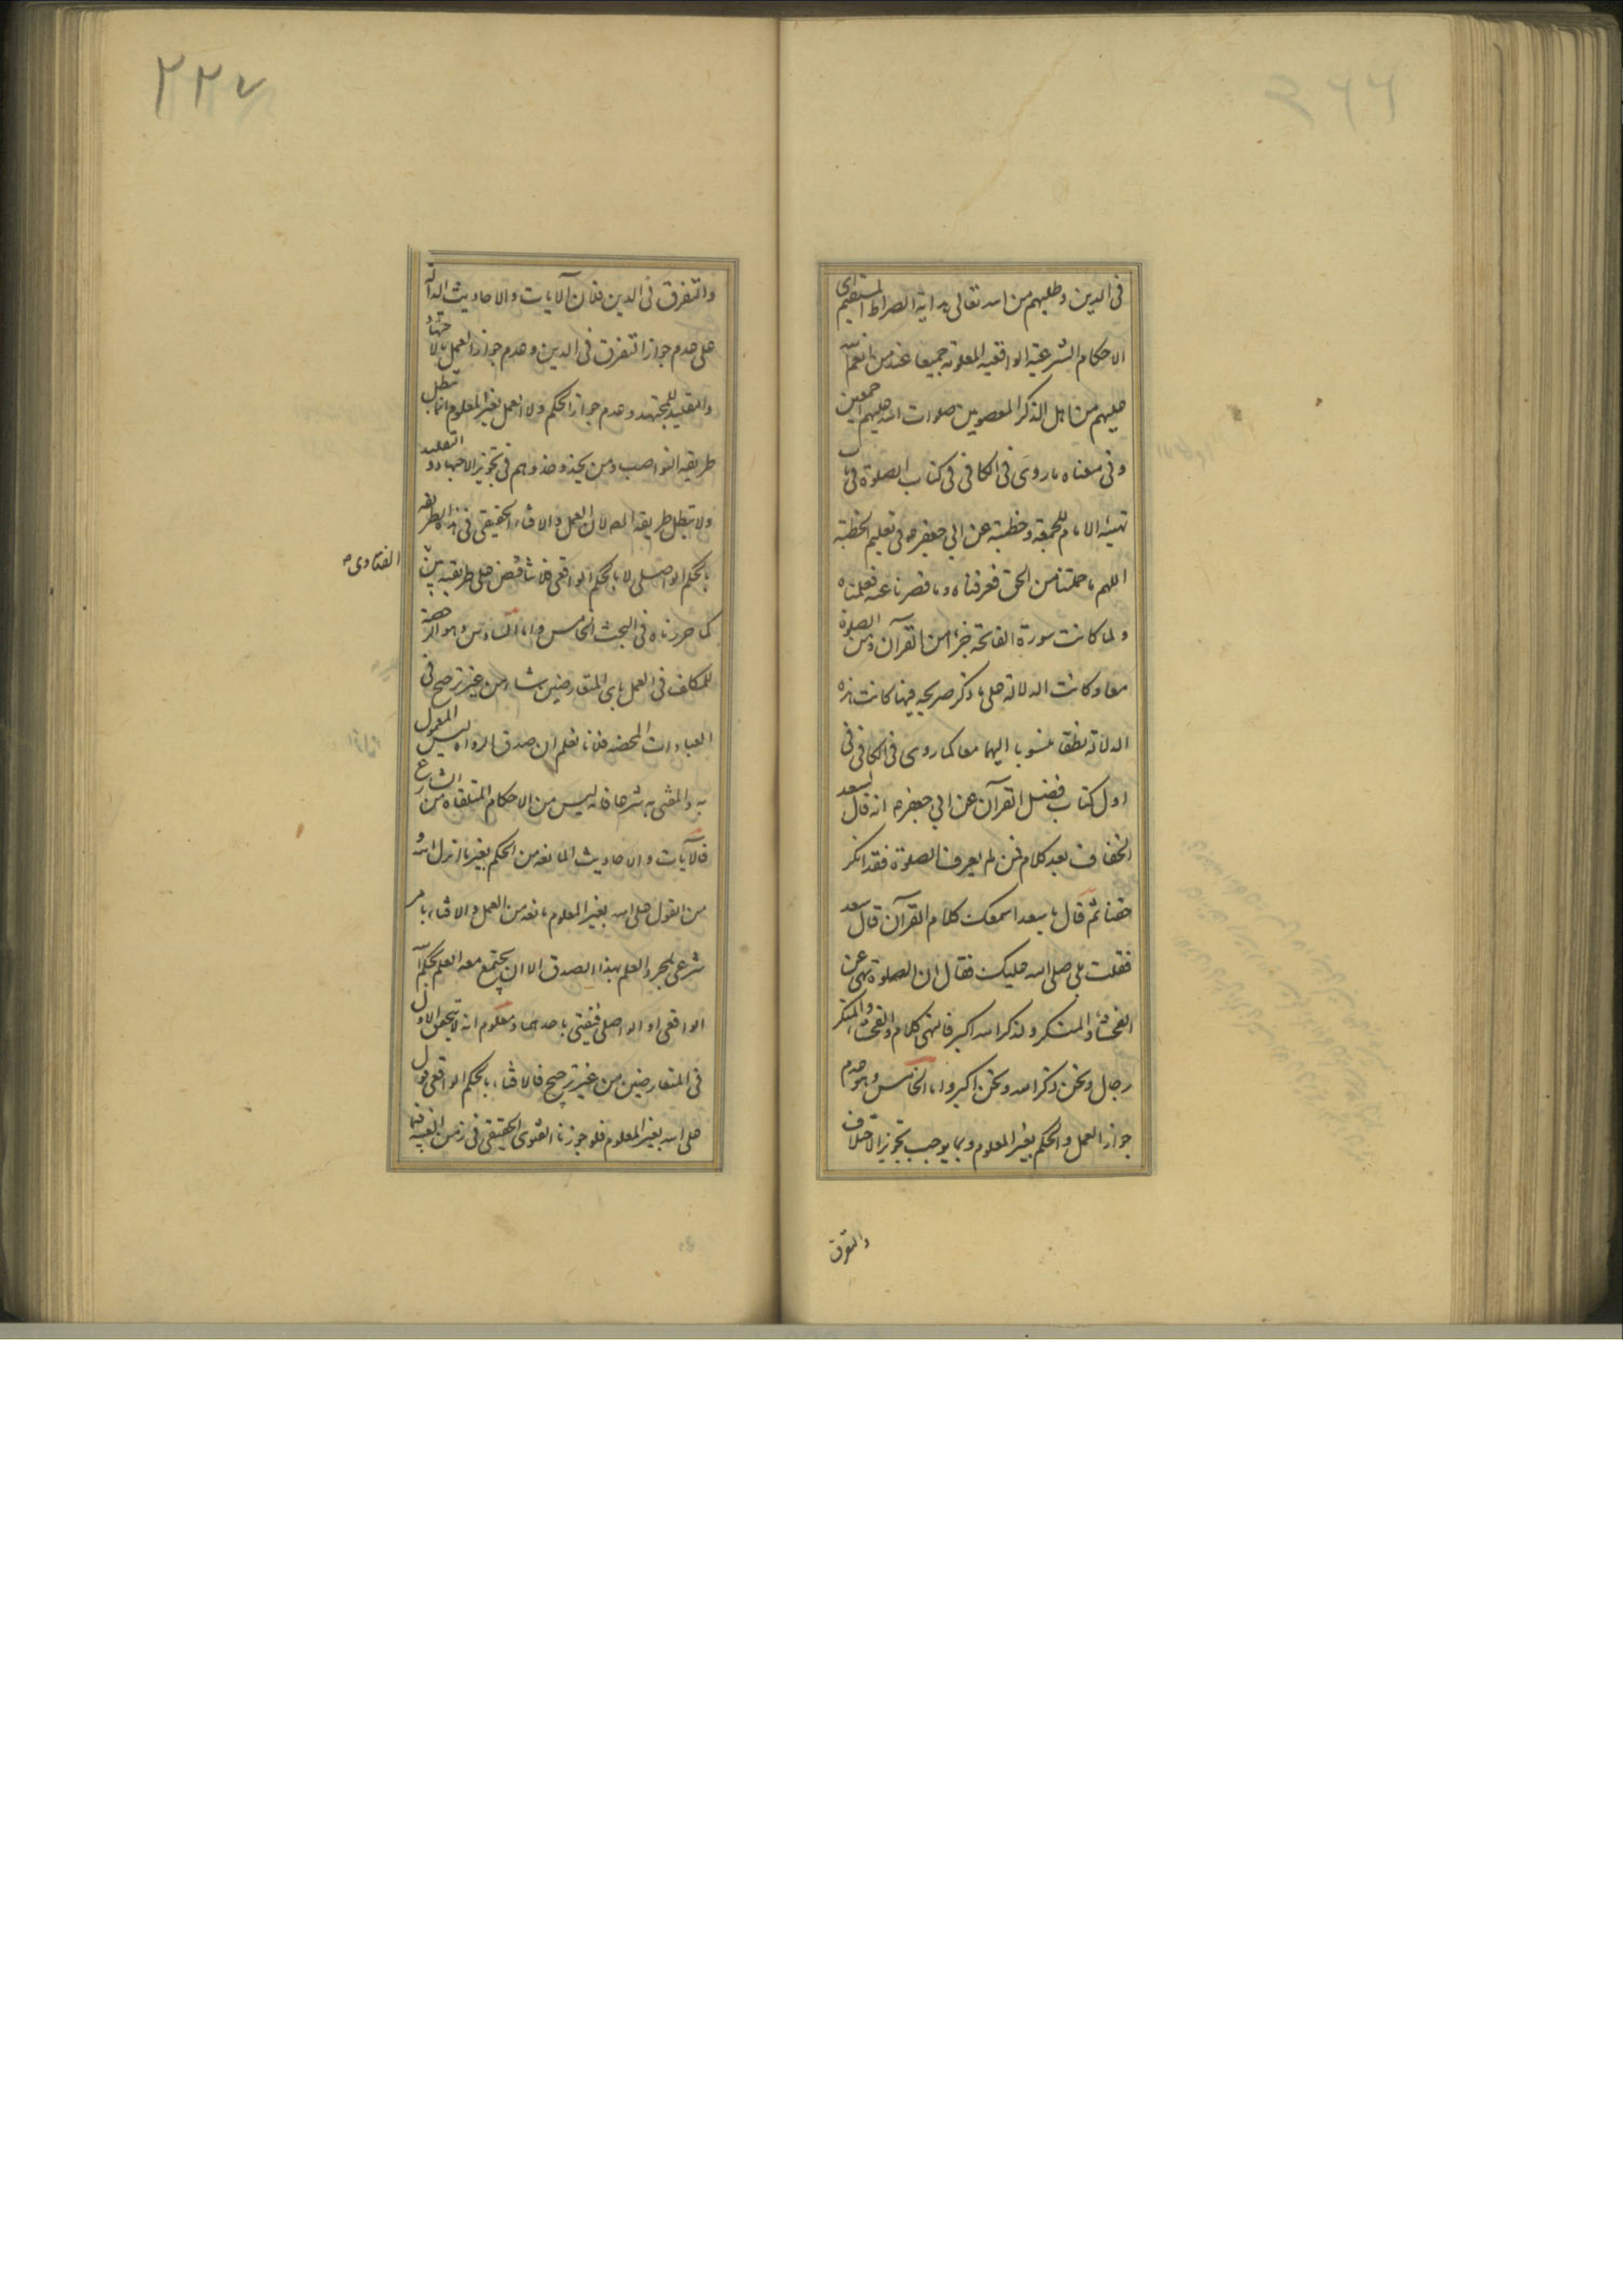 في الدين وطلبهم من الله تعالى هداية الصراط المستقيم اى
الاحكام الشرعية الواقعية المعلومة جميعا عند من انعم الله
عليهم من اهل الذكر المعصومين صلوات الله عليهم اجمعين
وفي معناه ما روى في الكافي في كتاب الصلوة في باب
تهيئه الامام للجمعة وخطبته عن ابي جعفر ع في تعليم الخطبة
اللهم ما حملتنا من الحق فعرفناه وما قصرنا عنه فعلمناه
ولما كانت سورة الفاتحة جزءا من القرآن ومن الصلوة
معا وكانت الدلالة على ما ذكر صريحه فيها كانت هذه
الدلالة نطقا منسوبا اليهما معا كما روى في الكافي في
اول كتاب فضل القرآن عن ابي جعفر ع انه قال لسعد
الخفاف بعد كلام فمن لم يعرف الصلوة فقد انكر
حقنا ثم قال يا سعد اسمعك كلام القرآن قال سعد
فقلت بلى صلى الله عليك فقال ان الصلوة تنهى عن
الفحشاء والمنكر ولذكر الله اكبر فالنهي كلام والفحشاء والمنكر
رجال ونحن ذكر الله ونحن اكبر واما الخامس وهو عدم
جواز العمل والحكم بغير المعلوم وبما يوجب تجويز الاختلاف
والتفرق
٢٢٧
والتفرق في الدين فلان الآيات والاحاديث الدالة
على عدم جواز التفرق في الدين وعدم جواز العمل بالاجتهاد
والتقليد للمجتهد وعدم جواز الحكم ولا العمل بغير المعلوم انما تبطل
طريقه النواصب ومن يحذو حذوهم في تجويز الاجتهاد والتقليد
ولا تبطل طريقه لان العمل والافتاء الحقيقي في هذه الطريقه
بالحكم الواصلي لا بالحكم الواقعي فلا تناقض على طريقته بين
الفتاوى
كما حررناه في البحث الخامس واما السادس وهو الرخصة
للمكلف في العمل باى المتعارضين شاء من غير ترجيح في
العبادات المحضه فلانا نعلم ان صدق الرواة ليس المعمول
به والمفتى به شرعا فانه ليس من الاحكام المتلقاه من الشارع
فالآيات والاحاديث المانعه من الحكم بغير ما انزل الله و
من القول على الله بغير المعلوم مانعه من العمل والافتاء بامر
شرعي لمجرد العلم بهذا الصدق الا ان يجتمع معه العلم بحكم الله
الواقعي او الواصلي فيفتى باحدهما ومعلوم انه لا يتحقق الاول
في المتعارضين من غير ترجيح فالافتاء بالحكم الواقعي قول
على الله بغير المعلوم فلو جوزنا الفتوى الحقيقي في زمن الغيبة فيما